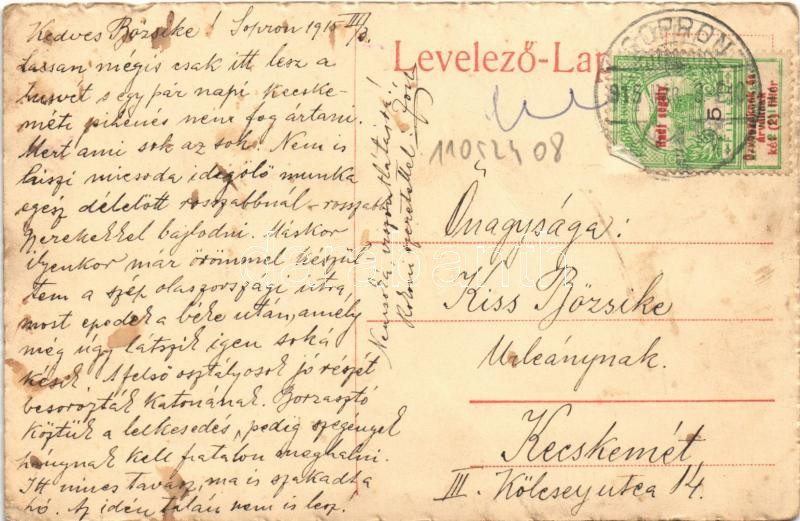 Kedves Bözsike! Sopron 1915 III/3.
Lassan mégis csak itt lesz a
husvet s egy pár napi kecske-
méti pihenés nem fog ártani.
Mert ami sok az sok. Nem is
hiszi micsoda idegölö munka
egész délelött rosszabbnál-rosszabb
gyerekekkel bajlodni. Máskor
ilyenkor már örömmel készül-
tem a szép olaszországi útra,
most epedek a béke után, amely
még úgy látszik igen soká
késik. A felső osztályosok jó részét
besorozták katonának. Borzasztó
köztük a lelkesedés, pedig szegények
hánynak kell fiatalon meghalni.
Itt nincs tavasz, ma is szakadt a
hó. Az idén talán nem is lesz.
Nemsoká viszontlátásra!
Rokoni szeretettel
Levelező-Lap
SOPRON
915
5
Hadi segély
Özvegyeknek és
árváknak
két (2) fillér
11052408
Őnagysága:
Kiss Bözsike
Urleánynak.
Kecskemét
III. Kölcsey utca 14.